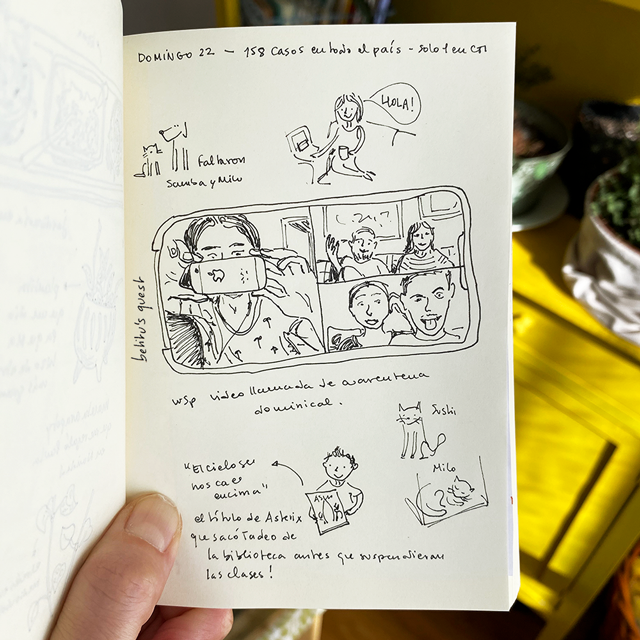 DOMINGO 22 – 158 casos en todo el país - solo 1 en
HOLA!
Faltaron
Samba y Milo
quest
wsp video llamada de cuarentena
dominical.
Sushi
Milo
"El cielo se
nos cae
encima"
el título de Asterix
que sacó Tadeo de
la biblioteca antes que suspendieran
las clases!